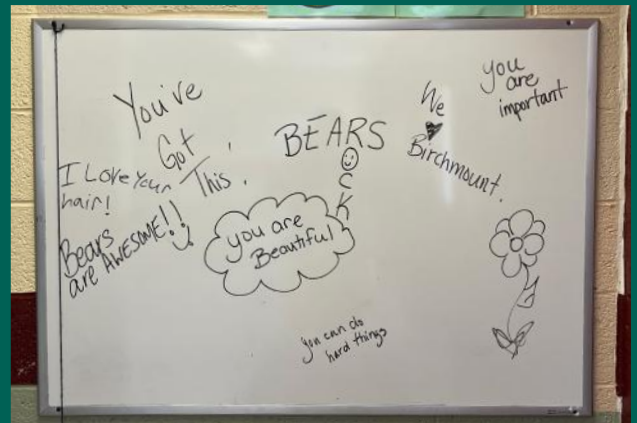 You've
Got
This.
I Love Your
hair!
Bears
are AWESOME!!
BEARS
R
O
C
K
you are
Beautiful
We ♥
Birchmount.
you
are
important
you can do
hard things